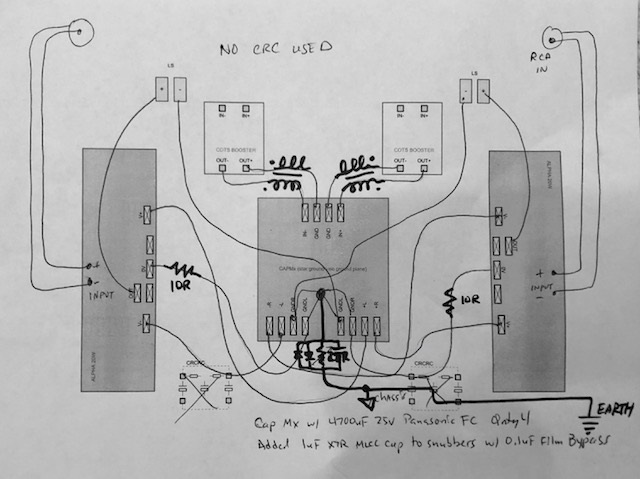 NO CRC USED
RCA
IN
LS
LS
+ -
- +
IN- IN+
IN- IN+
COTS BOOSTER
COTS BOOSTER
OUT- OUT+
OUT- OUT+
IN- GND GND IN+
ALPHA 20W
ALPHA 20W
+
-
INPUT
+
INPUT
-
10R
10R
CRCRC
CRCRC
CHASSIS
EARTH
Cap Mx w/ 4700uF 25V Panasonic FC Qnty 4
Added 1uF X7R MLCC cap to snubbers w/ 0.1uF Film Bypass